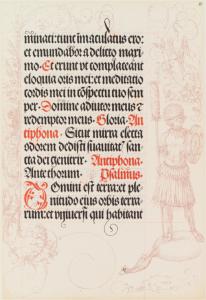 minati: tunc immaculatus ero:
et emundabor a delicto maxi-
mo. Et erunt ut complaceant
eloquia oris mei: et meditatio
cordis mei in conspectu tuo sem
per. Domine adiutor meus et
redemptor meus. Gloria. An
tiphona. Sicut mirra electa
odorem dedisti suauitatis san-
cta dei genitrix. Antiphona.
Ante thorum. Psalmus.
Domini est terra: et ple
nitudo eius orbis terra-
rum: et vniuersi qui habitant